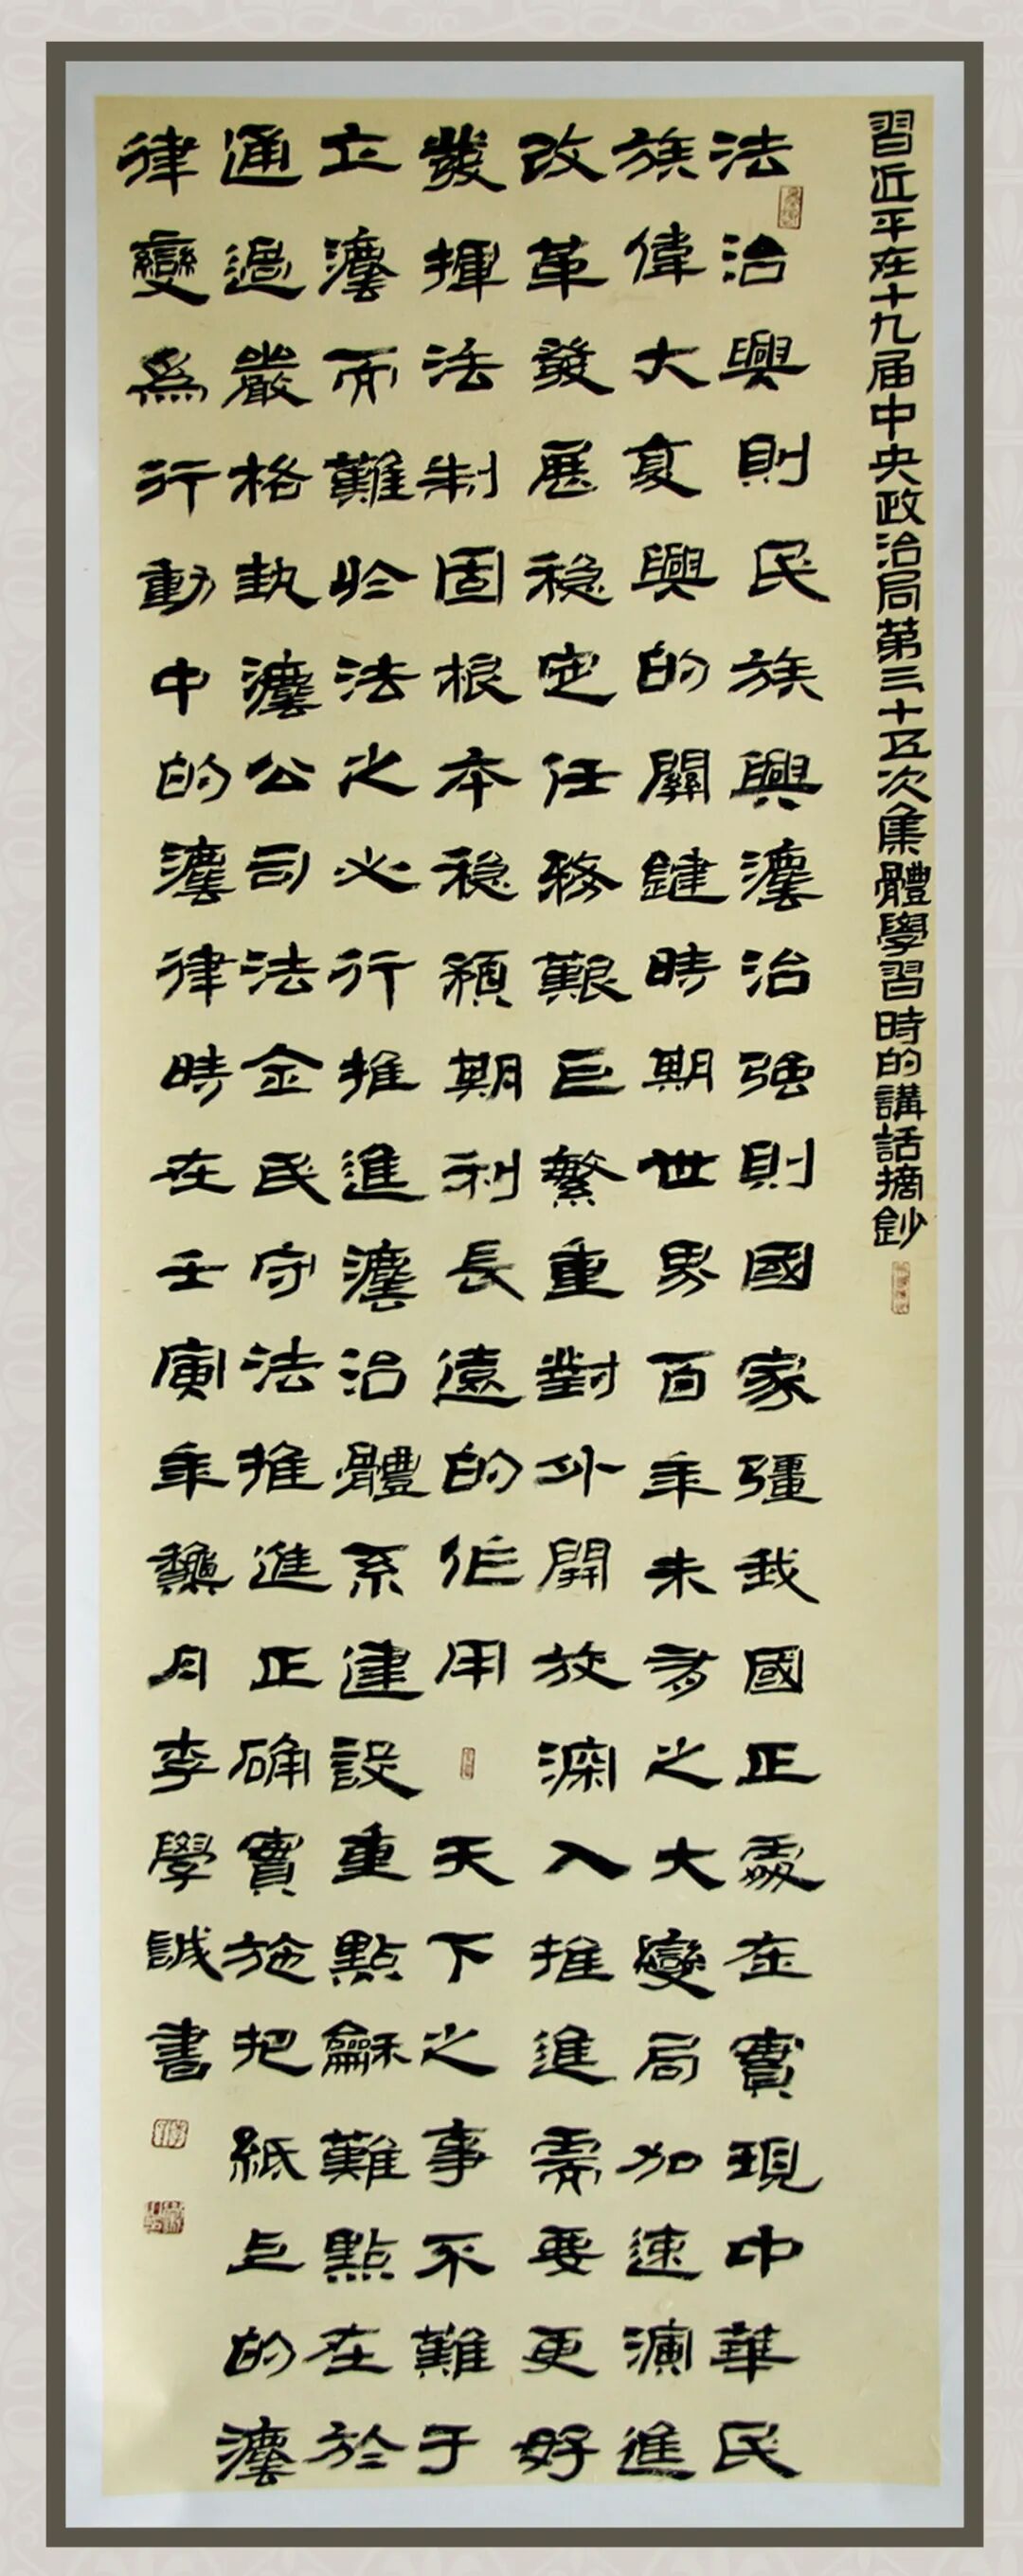 習近平在十九届中央政治局第三十五次集體學習時的講話摘鈔
法治興則民族興灋治强則國家彊我國正處在實現中華民
族偉大复興的關鍵時期世界百年未有之大變局加速演進
改革發展穏定任務艱巨繁重對外開放深入推進需要更好
發揮法制固根本穏預期利長遠的作用天下之事不難于
立灋而難於法之必行推進灋治體系建設重點龢難點在於
通過嚴格執灋公司法全民守法推進正确實施把紙上的灋
律變為行動中的灋律時在壬寅年龝月李學誠書